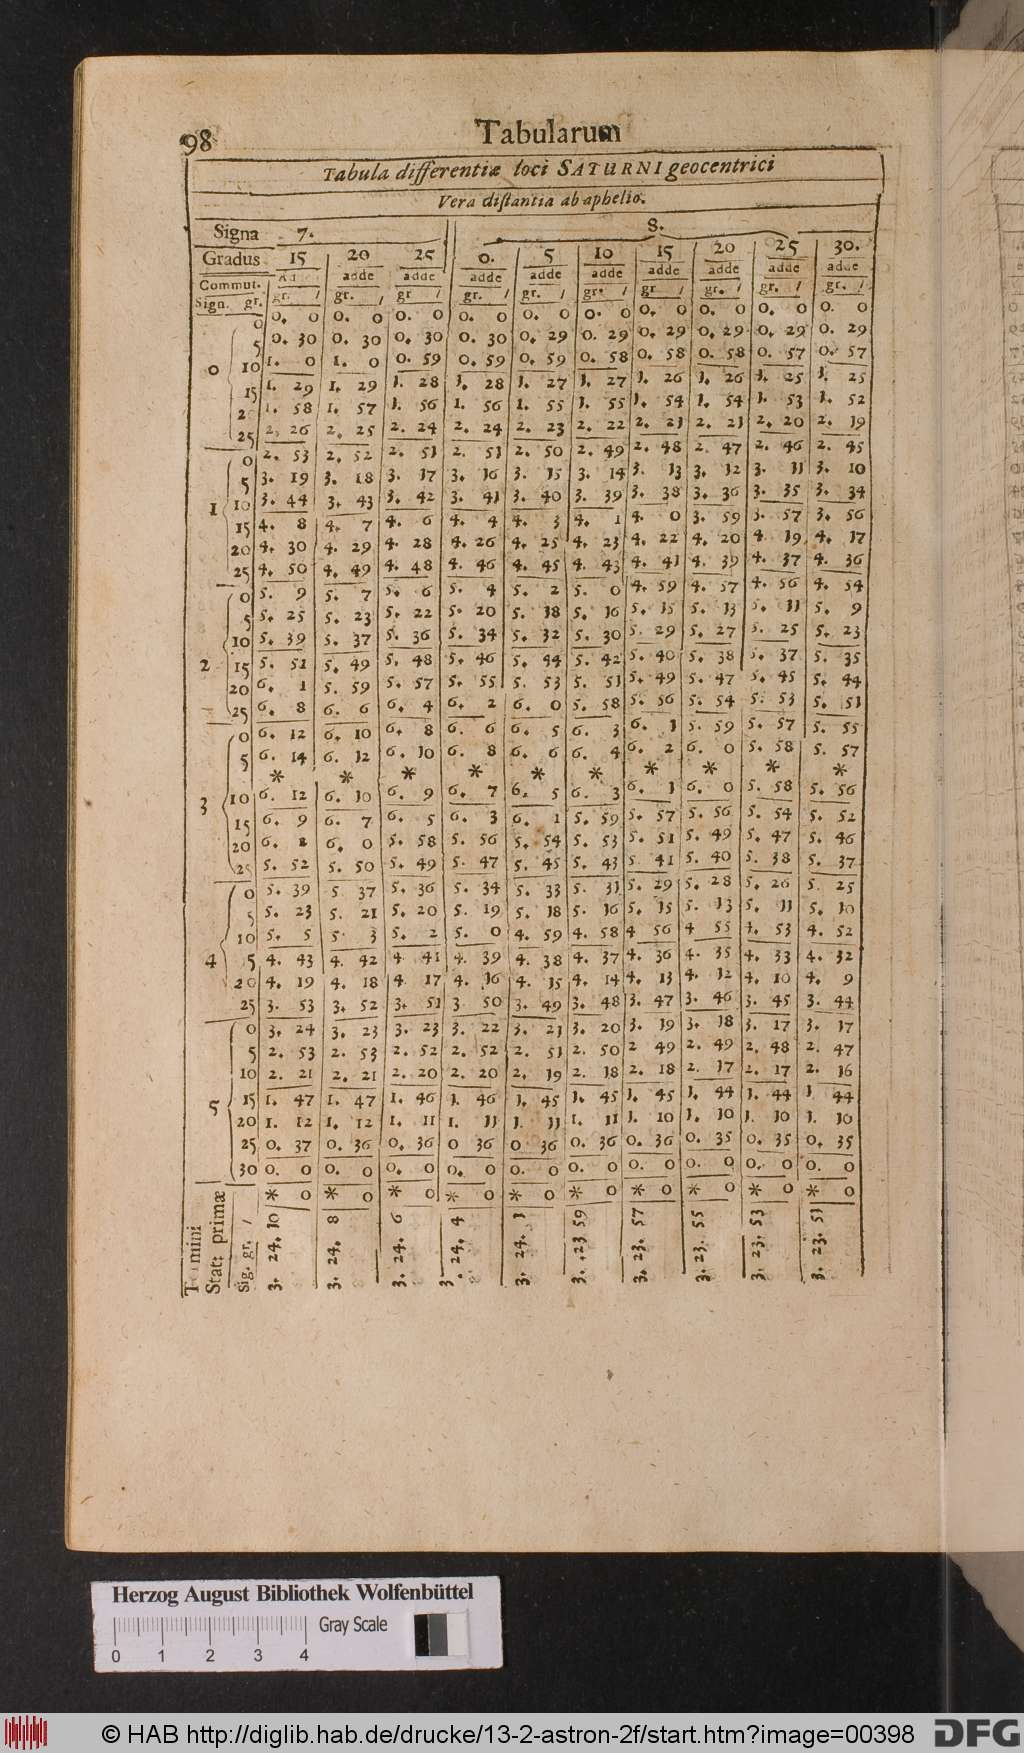 98 Tabularum
Tabula differentiæ loci SATURNI geocentrici
Vera distantia ab aphelio.
Signa 7. 8.
Gradus 15 20 25 0. 5 10 15 20 25 30.
Commut. adde adde adde adde adde adde adde adde adde
Sign. gr. gr. / gr. / gr / gr. / gr. / gr. / gr / gr. / gr. / gr. /
0 0. 0 0. 0 0. 0 0. 0 0. 0 0. 0 0. 0 0. 0 0. 0 0. 0
5 0. 30 0. 30 0. 30 0. 30 0. 29 0. 29 0. 29 0. 29 0. 29 0. 29
0 10 1. 0 1. 0 0. 59 0. 59 0. 59 0. 58 0. 58 0. 58 0. 57 0. 57
15 1. 29 1. 29 1. 28 1. 28 1. 27 1. 27 1. 26 1. 26 1. 25 1. 25
2 1. 58 1. 57 1. 56 1. 56 1. 55 1. 55 1. 54 1. 54 1. 53 1. 52
25 2. 26 2. 25 2. 24 2. 24 2. 23 2. 22 2. 21 2. 21 2. 20 2. 19
0 2. 53 2. 52 2. 51 2. 51 2. 50 2. 49 2. 48 2. 47 2. 46 2. 45
5 3. 19 3. 18 3. 17 3. 16 3. 15 3. 14 3. 13 3. 12 3. 11 3. 10
1 10 3. 44 3. 43 3. 42 3. 41 3. 40 3. 39 3. 38 3. 36 3. 35 3. 34
15 4. 8 4. 7 4. 6 4. 4 4. 3 4. 1 4. 0 3. 59 3. 57 3. 56
20 4. 30 4. 29 4. 28 4. 26 4. 25 4. 23 4. 22 4. 20 4. 19 4. 17
25 4. 50 4. 49 4. 48 4. 46 4. 45 4. 43 4. 41 4. 39 4. 37 4. 36
0 5. 9 5. 7 5. 6 5. 4 5. 2 5. 0 4. 59 4. 57 4. 56 4. 54
5 5. 25 5. 23 5. 22 5. 20 5. 18 5. 16 5. 15 5. 13 5. 11 5. 9
10 5. 39 5. 37 5. 36 5. 34 5. 32 5. 30 5. 29 5. 27 5. 25 5. 23
2 15 5. 51 5. 49 5. 48 5. 46 5. 44 5. 42 5. 40 5. 38 5. 37 5. 35
20 6. 1 5. 59 5. 57 5. 55 5. 53 5. 51 5. 49 5. 47 5. 45 5. 44
25 6. 8 6. 6 6. 4 6. 2 6. 0 5. 58 5. 56 5. 54 5. 53 5. 51
0 6. 12 6. 10 6. 8 6. 6 6. 5 6. 3 6. 1 5. 59 5. 57 5. 55
5 6. 14 6. 12 6. 10 6. 8 6. 6 6. 4 6. 2 6. 0 5. 58 5. 57
* * * * * * * * * *
3 10 6. 12 6. 10 6. 9 6. 7 6. 5 6. 3 6. 1 6. 0 5. 58 5. 56
15 6. 9 6. 7 6. 5 6. 3 6. 1 5. 59 5. 57 5. 56 5. 54 5. 52
20 6. 2 6. 0 5. 58 5. 56 5. 54 5. 53 5. 51 5. 49 5. 47 5. 46
25 5. 52 5. 50 5. 49 5. 47 5. 45 5. 43 5. 41 5. 40 5. 38 5. 37
0 5. 39 5. 37 5. 36 5. 34 5. 33 5. 31 5. 29 5. 28 5. 26 5. 25
5 5. 23 5. 21 5. 20 5. 19 5. 18 5. 16 5. 15 5. 13 5. 11 5. 10
10 5. 5 5. 3 5. 2 5. 0 4. 59 4. 58 4 56 4 55 4. 53 4. 52
4 5 4. 43 4. 42 4 41 4. 39 4. 38 4. 37 4. 36 4. 35 4. 33 4. 32
20 4. 19 4. 18 4 17 4. 16 4. 15 4. 14 4. 13 4. 12 4. 10 4. 9
25 3. 53 3. 52 3. 51 3 50 3. 49 3. 48 3. 47 3. 46 3. 45 3. 44
0 3. 24 3. 23 3. 23 3. 22 3. 21 3. 20 3. 19 3. 18 3. 17 3. 17
5 2. 53 2. 53 2. 52 2. 52 2. 51 2. 50 2 49 2. 49 2. 48 2. 47
10 2. 21 2. 21 2. 20 2. 20 2. 19 2. 18 2. 18 2. 17 2. 17 2. 16
5 15 1. 47 1. 47 1. 46 1. 46 1. 45 1. 45 1. 45 1. 44 1. 44 1 44
20 1. 12 1. 12 1. 11 1. 11 1. 11 1. 11 1. 10 1. 10 1. 10 1. 10
25 0. 37 0. 36 0. 36 0 36 0 36 0. 36 0. 36 0. 35 0. 35 0. 35
30 0. 0 0. 0 0. 0 0. 0 0. 0 0. 0 0. 0 0. 0 0. 0 0. 0
* 0 * 0 * 0 * 0 * 0 * 0 * 0 * 0 * 0 * 0
Stat: primæ
Sig. gr. /
3. 24. 10 3. 24. 8 3. 24. 6 3. 24. 4 3. 24. 1 3. 23 59 3. 23. 57 3. 23. 55 3. 23. 53 3. 23. 51
Herzog August Bibliothek Wolfenbüttel
Gray Scale
0 1 2 3 4
© HAB http://diglib.hab.de/drucke/13-2-astron-2f/start.htm?image=00398 DFG